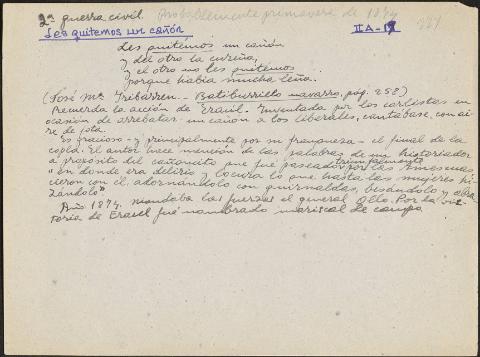 2ª guerra civil. Probablemente primavera de 1874
Les quitemos un cañón II A-
Les quitemos un cañón
y del otro la cureña,
y el otro no les quitemos
porque había mucha leña.
(José Mª Iribarren.- Batiburrillo navarro, pág. 252)
Recuerda la acción de Eraul. Inventada por los carlistas en
ocasión de arrebatar un cañón a los liberales, cantábase, con ai-
re de jota.
Es gracioso - y principalmente por su franqueza - el final de la
copla. El autor hace mención de las palabras de un historiador
a propósito del cañoncito que fué paseado triunfalmente por las Amescuas
"en donde era delirio y locura lo que hasta las mujeres hi-
cieron con él, adornándolo con guirnaldas, besándolo y abra-
zándolo"
Año 1874. mandaba las fuerzas el general Ollo. Por la vic-
toria de Eraul fué nombrado mariscal de campo